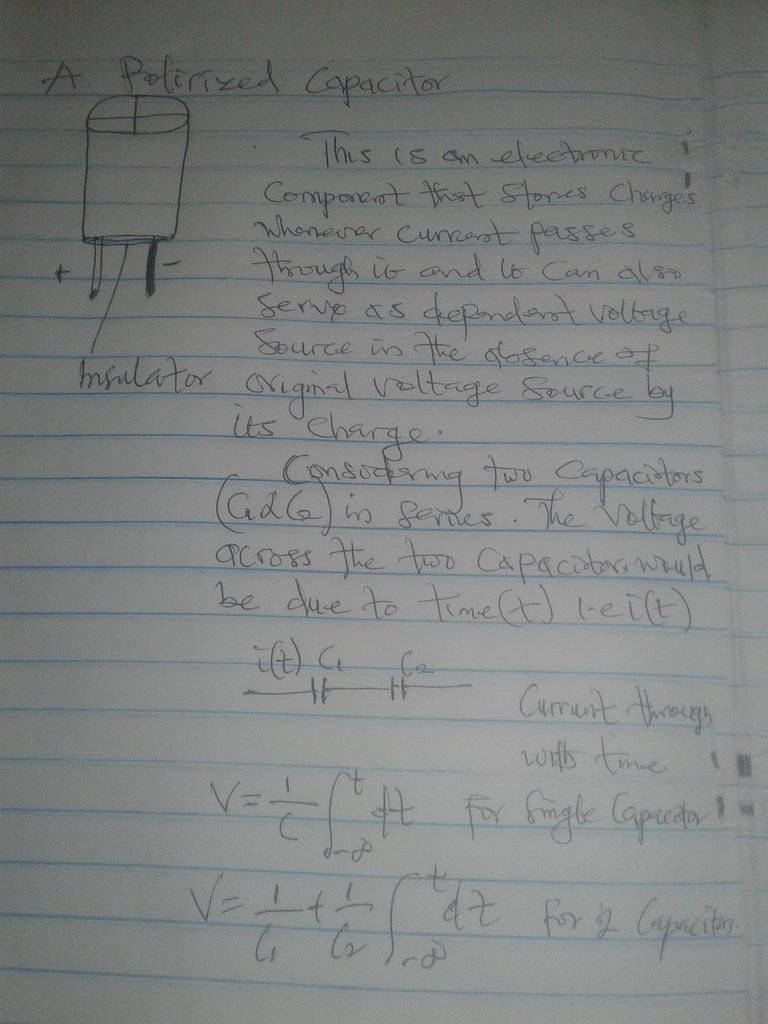 A Polirized Capacitor
This is an electronic
Component that stores Charges
Whenever current passes
through it and it can also
serve as dependent voltage
Source in the absence of
original voltage source by
its charge.
+
-
Insulator
Considering two Capacitors
(C1 & C2) in series. The Voltage
across the two Capacitors would
be due to time(t) i.e i(t)
i(t) C1 C2
Current through
with time
V = 1/C ∫_{-∞}^{t} dt for Single Capacitor
V = 1/C1 + 1/C2 ∫_{-∞}^{t} dt for 2 Capacitors.